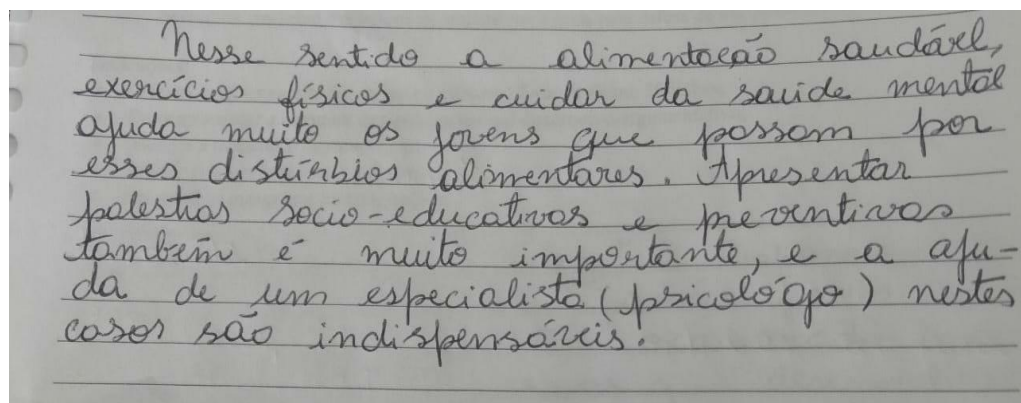 Nesse sentido a alimentação saudável,
exercícios físicos e cuidar da saúde mental
ajuda muito os jovens que passam por
esses distúrbios alimentares. Apresentar
palestras socio-educativas e preventivas
também é muito importante, e a aju-
da de um especialista (psicológo) nestes
casos são indispensáveis.